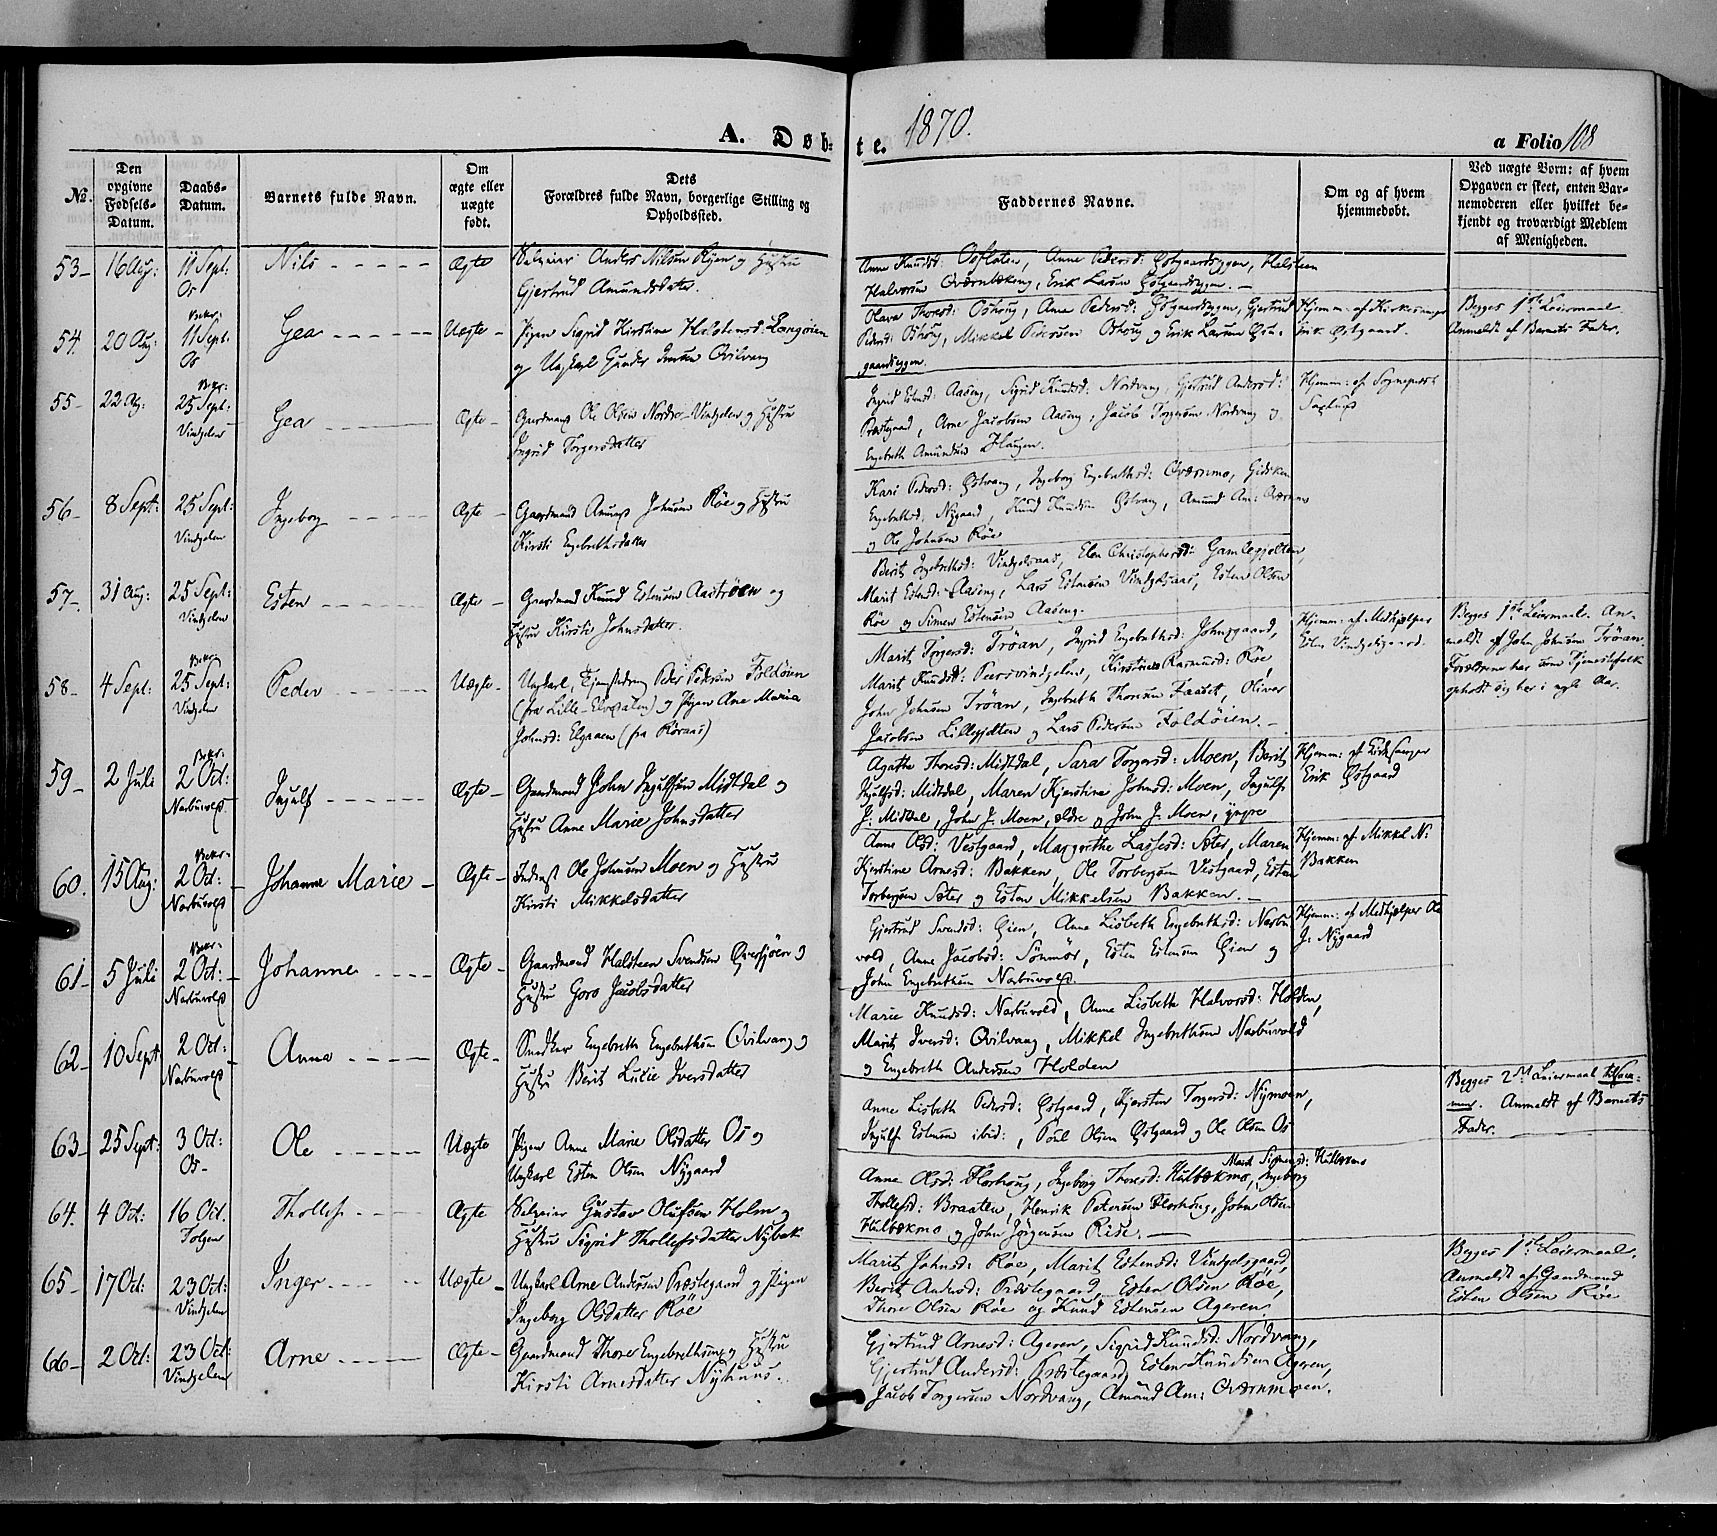 A. Døb: te. 1870.
a Folio 108
No.
Den opgivne Fødsels-Datum.
Daabs-Datum.
Barnets fulde Navn.
Om ægte eller uægte født.
Dets Forældres fulde Navn, borgerlige Stilling og Opholdssted.
Faddernes Navne.
Om og af hvem hjemmedøbt.
Ved uægte Børn: af hvem Opgaven er skeet, enten Barnemoderen eller hvilket bekjendt og troværdigt Medlem af Menigheden.
53 16 Aug: 11 Sept: Os Nils Ægte
Selveier Anders Nilsen Ryen og Hustru
Gjertrud Amundsdatter.
Anne Knudsd: Osfloten, Anne Pedersd: Østgaardseggen, Halsteen
Halvorsen Qværnbækeng, Erik Larsen Østgaardseggen.
54. 20 Aug: Bekr: 11 Sept: Os Gea Uægte
Pigen Sigrid Kirstine Halstensd: Langøien
og Ungkarl Gunder Iversen Qvilvang
Olava Thoresd: Oshoug, Anne Pedersd: Østgaardseggen, Gjertrud
Pedersd: Oshoug, Mikkel Pedersen Oshoug og Erik Larsen Østgaardseggen.
Hjemm: af Kirkesanger
Erik Østgaard.
Begges 1ste Leiermaal.
Anmeldt af Barnets Fader.
55 22 Aug: Bekr: 25 Sept: Vingelen Gea Ægte
Gaardmand Ole Olsen Nordre-Vingelen og Hustru
Ingrid Torgersdatter
Ingrid Estensd: Aaseng, Sigrid Knudsd: Nordvang, Gjertrud Andersd:
Præstegaard, Arne Jacobsen Aaseng, Jacob Torgersen Nordvang og
Engebreth Amundsen Haugen.
Hjemm: af Sognepræst
56 8 Sept: 25 Sept: Vingelen Ingeborg Ægte
Gaardmand Amund Johnsen Røe og Hustru
Kirsti Engebrethsdatter
Kari Pedersd: Østvang, Ingeborg Engebrethsd: Qværnmo, Gidsken
Engebrethsd: Nygaard, Knud Knudsen Østvang, Amund Am: Qværnmo
og Ole Johnsen Røe
57 31 Aug: 25 Sept: Vingelen Esten Ægte
Gaardmand Knud Estensen Aastrøen og
Hustru Kirsti Johnsdatter.
Berit Ingebrethsd: Vingelsaas, Elen Christophersd: Gamlegjelten,
Marit Estensd: Aaseng, Lars Estensen Vingelsaas, Esten Olsen
Røe og Simen Estensen Aaseng.
58 4 Sept: Bekr: 25 Sept: Vingelen Peder Uægte
Ungkarl, Tjenestedreng Peder Pedersen Foldøien
(fra Lille-Elvedalen) og Pigen Ane Maria
Johnsd: Elgaaen (fra Røraas)
Marit Torgersd: Trøan, Ingrid Engebrethsd: Johnsgaard,
Marit Knudsd: Peersvingelen, Kirstine Rasmusd: Røe,
John Johnsen Trøan, Ingebreth Thoresen Faaset, Oliver
Jacobsen Lillegjelten og Lars Pedersen Foldøien.
Hjemm: af Medhjælper
Esten Vingelsgaard.
Begges 1ste Leiermaal. Anmeldt af John Johnsen Trøan.
Forældrene har som Tjenestefolk
opholdt sig her i nogle Aar.
59 2 Juli Bekr: 2 Oct: Narbuvold Ingulf Ægte
Gaardmand John Ingulfsen Midtdal og
Hustru Anne Marie Johnsdatter
Agathe Thoresd: Midtdal, Sara Torgersd: Moen, Berit
Ingulfsd: Midtdal, Maren Kjerstine Johnsd: Moen, Ingulf
J: Midtdal, John J: Moen, ældre og John J: Moen, yngre
Hjemm: af Kirkesanger
Erik Østgaard
60. 15 Aug: Bekr: 2 Oct: Narbuvold Johanne Marie Ægte
Inderst Ole Johnsen Moen og Hustru
Kirsti Mikkelsdatter
Anne Olsd: Vestgaard, Margrethe Lassesd: Sæter, Maren
Kjerstine Arnesd: Bakken, Ole Torbersen Vestgaard, Esten
Torbersen Sæter og Esten Mikkelsen Bakken.
Hjemm: af Mikkel N:
Bakken
61 5 Juli Bekr: 2 Oct: Narbuvold Johanne Ægte
Gaardmand Halsteen Svendsen Øversjøen og
Hustru Goro Jacobsdatter
Gjertrud Svendsd: Øien, Anne Lisbeth Engebrethsd: Narbuvold, Anne Jacobsd: Sönmör, Esten Estensen Øien og
John Engebrethsen Narbuvold.
Hjemm: af Medhjælper Ole
J: Nygaard
62 10 Sept 2 Oct: Narbuvold Anna Ægte
Snedker Engebreth Engebrethsen Qvilvang og
Hustru Berit Lucie Iversdatter
Marie Knudsd: Narbuvold, Anne Lisbeth Halvorsd: Holden,
Marit Iversd: Qvilvang, Mikkel Ingebrethsen Narbuvold
og Engebreth Andersen Holden
63 25 Sept: 3 Oct: Os Ole Uægte
Pigen Anne Marie Olsdatter Os og
Ungkarl Esten Olsen Nygaard
Anne Lisbeth Pedersd: Østgaard, Kjersten Torgersd: Nymoen,
Ingulf Estensen ibid:, Poul Olsen Østgaard og Ole Olsen Os
Begges 2det Leiermaal tilsammen. Anmeldt af Barnets
Fader.
64. 4 Oct: 16 Oct. Tolgen Thollef Ægte
Selveier Gustav Olufsen Holm og
Hustru Sigrid Thollefsdatter Nybak
Marit Simensd: Hulbækmo
Anne Olsd: Florhoug, Ingeborg Thoresd: Hulbækmo, Ingeborg
Thollefsd: Braaten, Henrik Petersen Florhoug, John Olsen
Hulbækmo og John Jørgensen Riise.
65 17 Oct: 23 Oct: Vingelen Inger Uægte
Ungkarl Arne Andersen Præstegaard og Pigen
Ingeborg Olsdatter Røe
Marit Johnsd: Røe, Marit Estensd: Vingelsgaard,
Berit Andersd: Præstegaard, Esten Olsen Røe,
Thore Olsen Røe og Knud Estensen Ageren.
Begges 1ste Leiermaal.
Anmeldt af Gaardmand
Esten Olsen Røe
66 2 Oct: 23 Oct: Vingelen Arne Ægte
Gaardmand Thore Engebrethsen og Hustru
Kirsti Arnesdatter Nyhuus.
Gjertrud Arnesd: Ageren, Sigrid Knudsd: Nordvang,
Gjertrud Andersd: Præstegaard, Esten Knudsen Ageren,
Jacob Torgersen Nordvang, Amund Am: Qværnmoen.